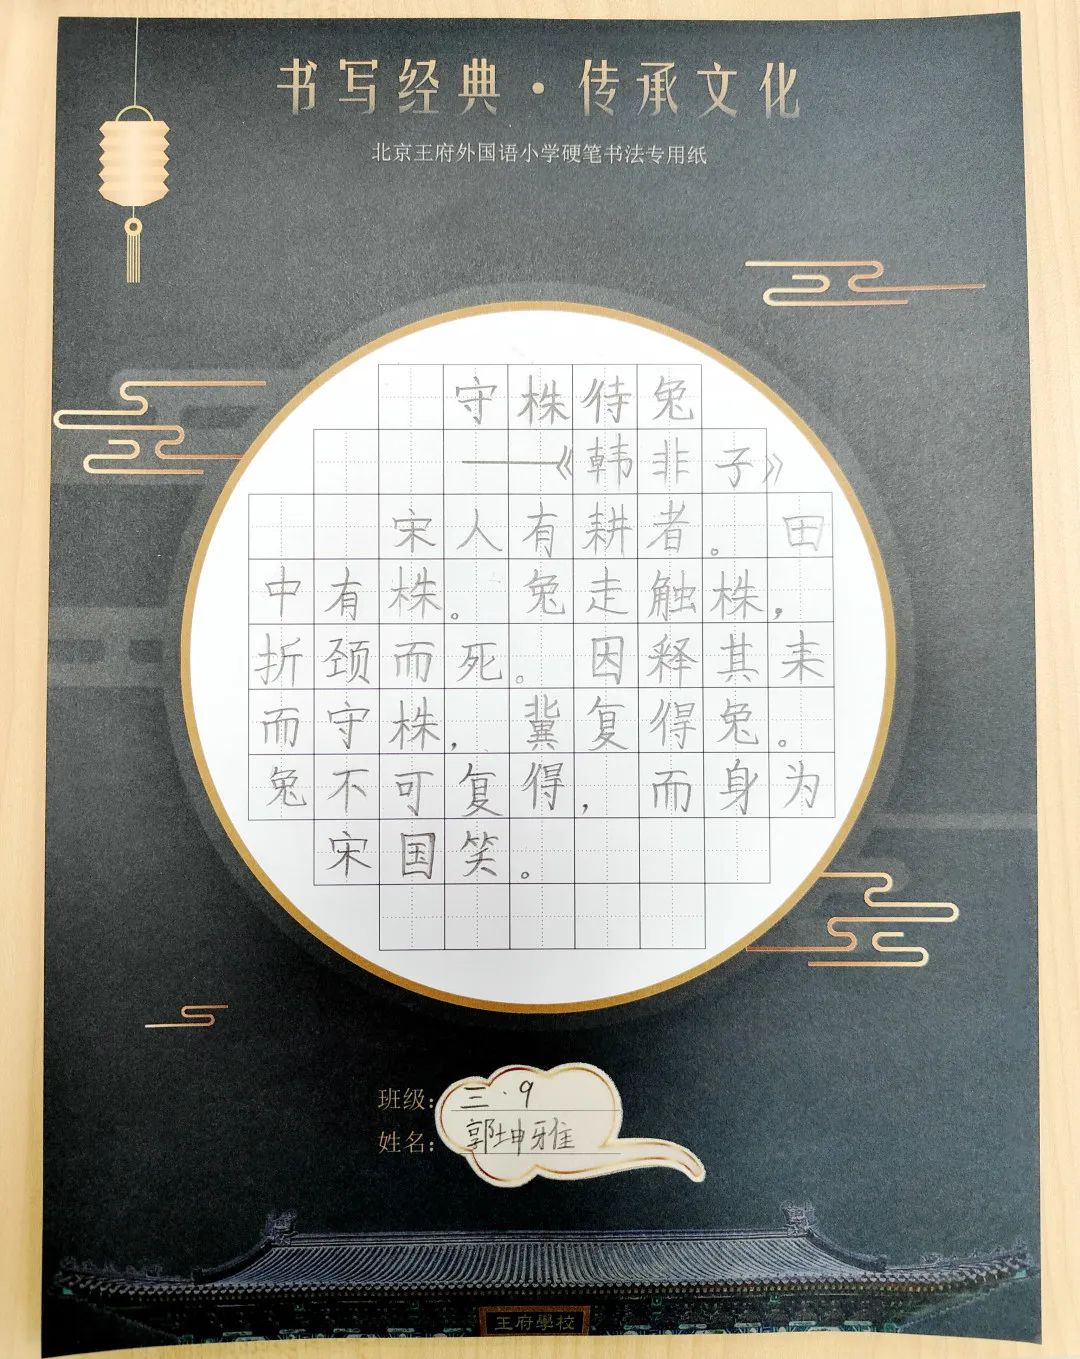 书写经典·传承文化
北京王府外国语小学硬笔书法专用纸
守株待兔
——《韩非子》
宋人有耕者。田
中有株。兔走触株，
折颈而死。因释其耒
而守株，冀复得兔。
兔不可复得，而身为
宋国笑。
班级：三·9
姓名：郭坤雅
王府學校